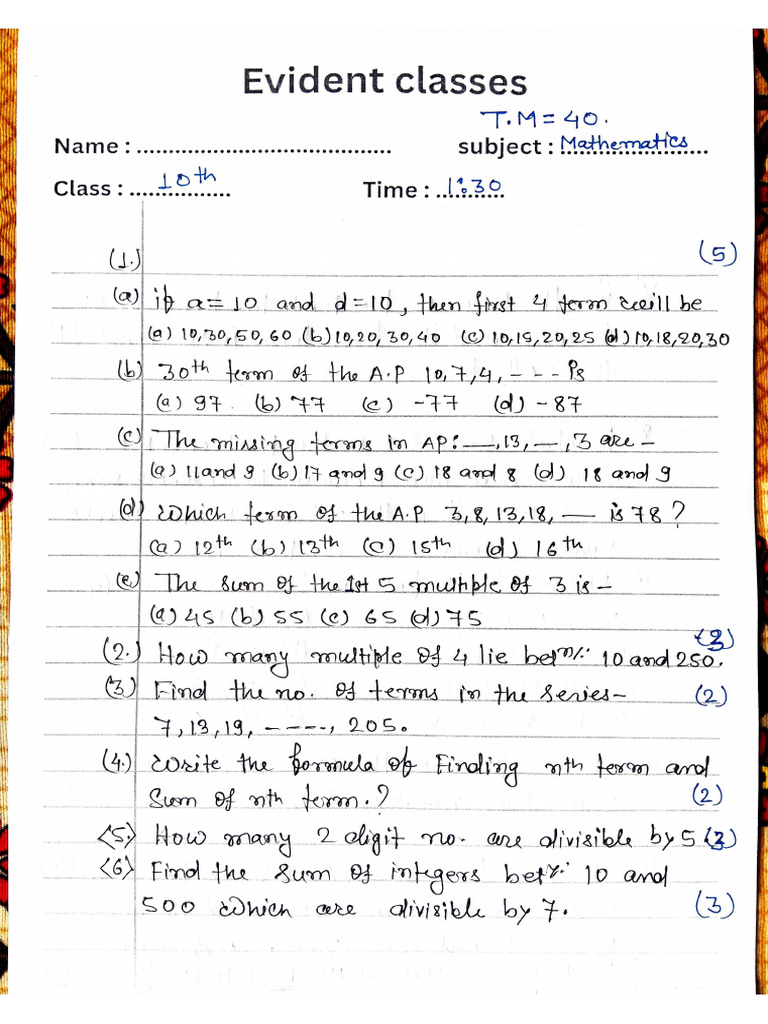 Evident classes
T.M = 40.
Name : ..................................... subject : Mathematics
Class : 10th Time : 1:30
(1.) (5)
(a) if a = 10 and d = 10, then first 4 term will be
(a) 10,30,50,60 (b) 10,20,30,40 (c) 10,15,20,25 (d) 10,18,20,30
(b) 30th term of the A.P 10,7,4, - - - is
(a) 97 (b) 77 (c) -77 (d) -87
(c) The missing terms in AP: __, 13, __, 3 are -
(a) 11 and 9 (b) 17 and 9 (c) 18 and 8 (d) 18 and 9
(d) Which term of the A.P 3,8,13,18, __ is 78?
(a) 12th (b) 13th (c) 15th (d) 16th
(e) The sum of the 1st 5 multiple of 3 is -
(a) 45 (b) 55 (c) 65 (d) 75
(2.) How many multiple of 4 lie betn: 10 and 250.
(3) Find the no. of terms in the series - (2)
7, 13, 19, - - - -, 205.
(4.) Write the formula of Finding nth term and
Sum of nth term.? (2)
(5.) How many 2 digit no. are divisible by 5
(6) Find the sum of integers bet: 10 and
500 which are divisible by 7. (3)